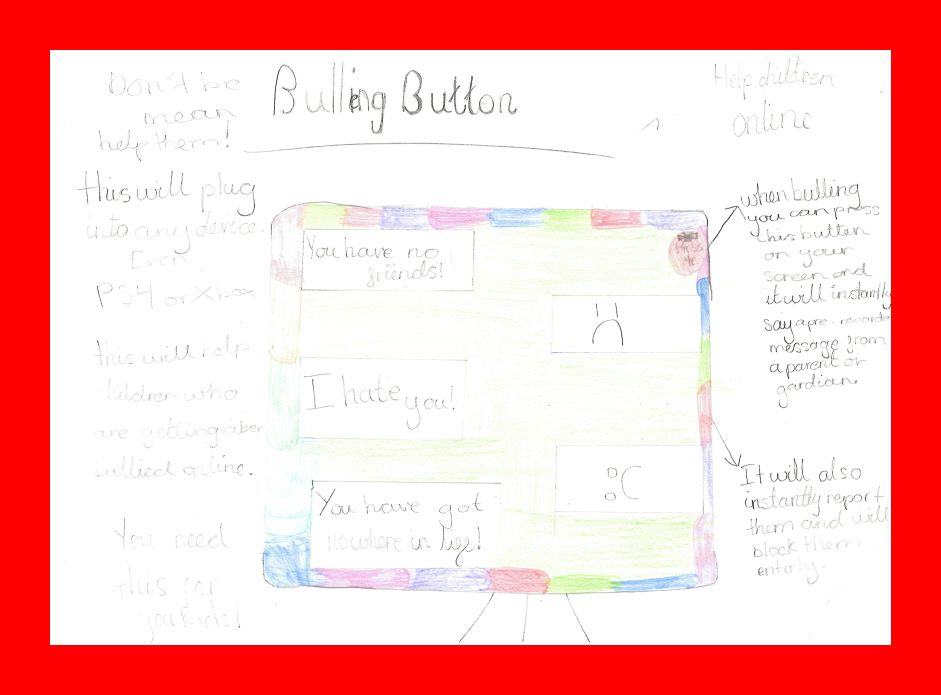 Bulling Button
Don't be
mean
help them!
this will plug
into any device.
Even
PS4 or Xbox
this will help
children who
are getting
bullied online.
You need
this for
you kids!
You have no
friends!
I hate
you!
:C
You have got
nowhere in life!
Help children
online
when bulling
you can press
this button
on your
screen and
it will instantly
say a pre-recorde
message from
a parent or
gardian
It will also
instantly report
them and will
block them
entirly.